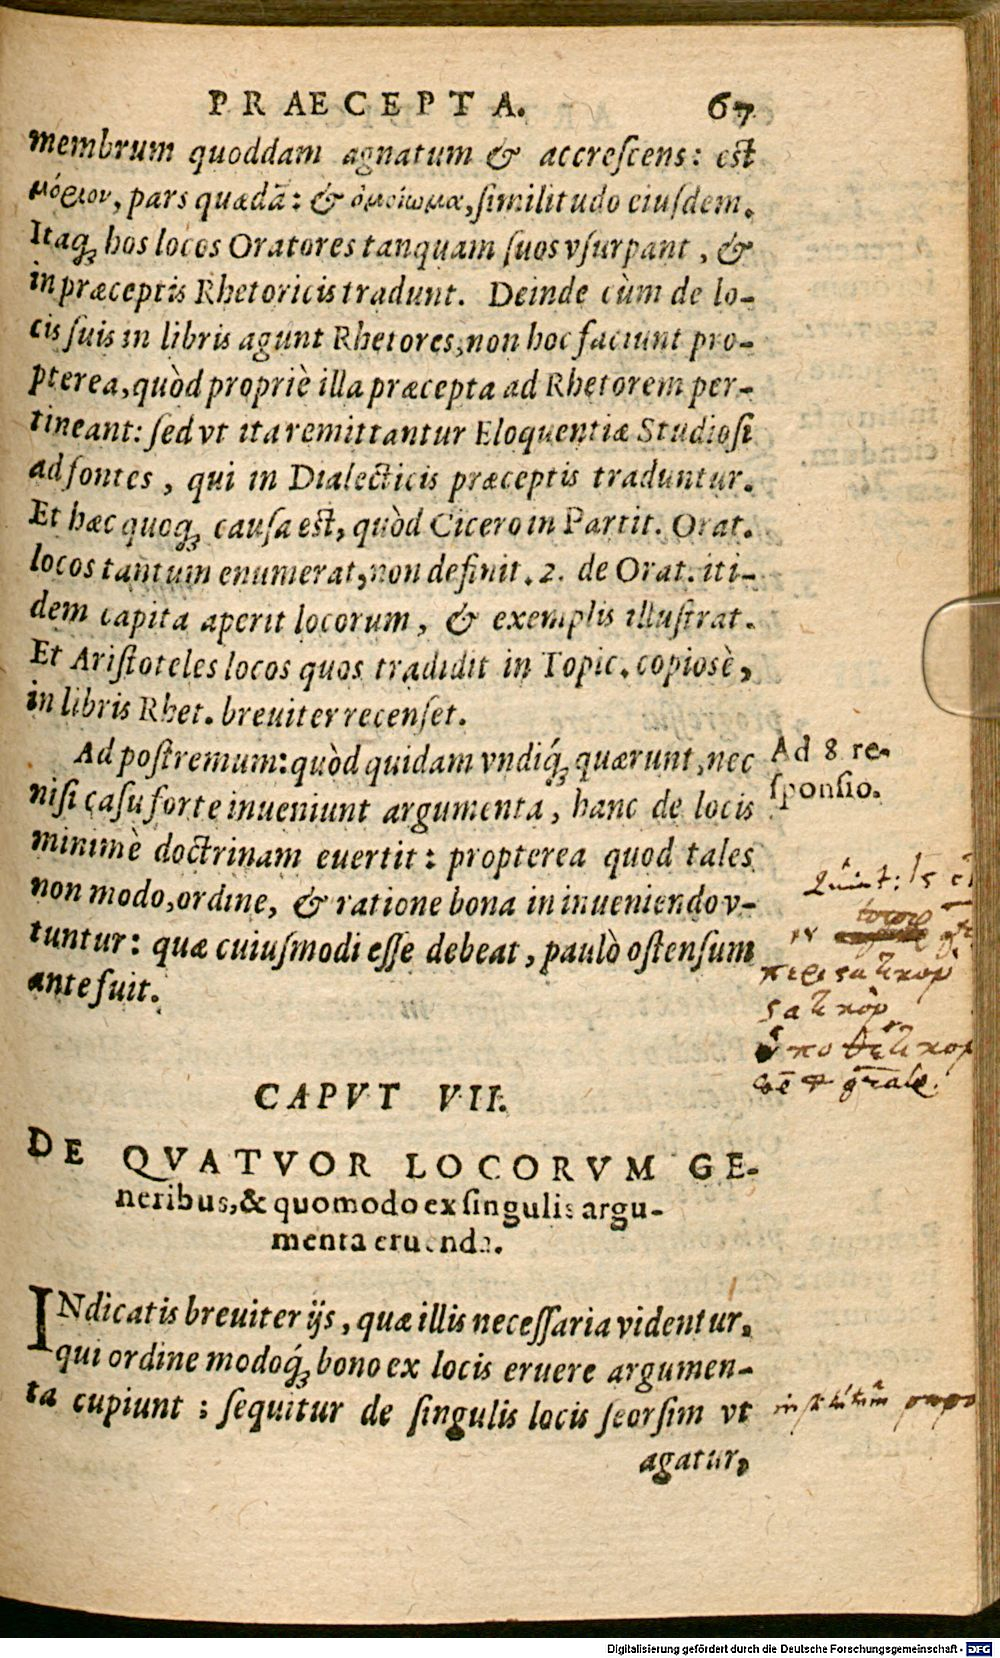 PRAECEPTA. 67
membrum quoddam agnatum & accreſcens: eſt
μόριον, pars quædā: & ὁμοίωμα, ſimilitudo eiuſdem.
Itaqꝫ hos locos Oratores tanquam ſuos vſurpant, &
in præceptis Rhetoricis tradunt. Deinde cùm de lo-
cis ſuis in libris agunt Rhetores, non hoc faciunt pro-
pterea, quòd propriè illa præcepta ad Rhetorem per-
tineant: ſed vt ita remittantur Eloquentiæ Studioſi
ad fontes, qui in Dialecticis præceptis traduntur.
Et hæc quoqꝫ cauſa eſt, quòd Cicero in Partit. Orat.
locos tantum enumerat, non definit. 2. de Orat. iti-
dem capita aperit locorum, & exemplis illuſtrat.
Et Ariſtoteles locos quos tradidit in Topic. copiosè,
in libris Rhet. breuiter recenſet.
Ad poſtremum: quòd quidam vndiqꝫ́ quærunt, nec
niſi caſu forte inueniunt argumenta, hanc de locis
minimè doctrinam euertit: propterea quod tales
non modo, ordine, & ratione bona in inueniendo v-
tuntur: quæ cuiuſmodi eſſe debeat, paulò oſtenſum
ante fuit.
Ad 8 re-
ſponſio.
CAPVT VII.
DE QVATVOR LOCORVM GE-
neribus, & quomodo ex ſingulis argu-
menta eruenda.
INdicatis breuiter ijs, quæ illis neceſſaria videntur,
qui ordine modoqꝫ́ bono ex locis eruere argumen-
ta cupiunt: ſequitur de ſingulis locis ſeorſim vt
agatur,
Digitalisierung gefördert durch die Deutsche Forschungsgemeinschaft - DFG